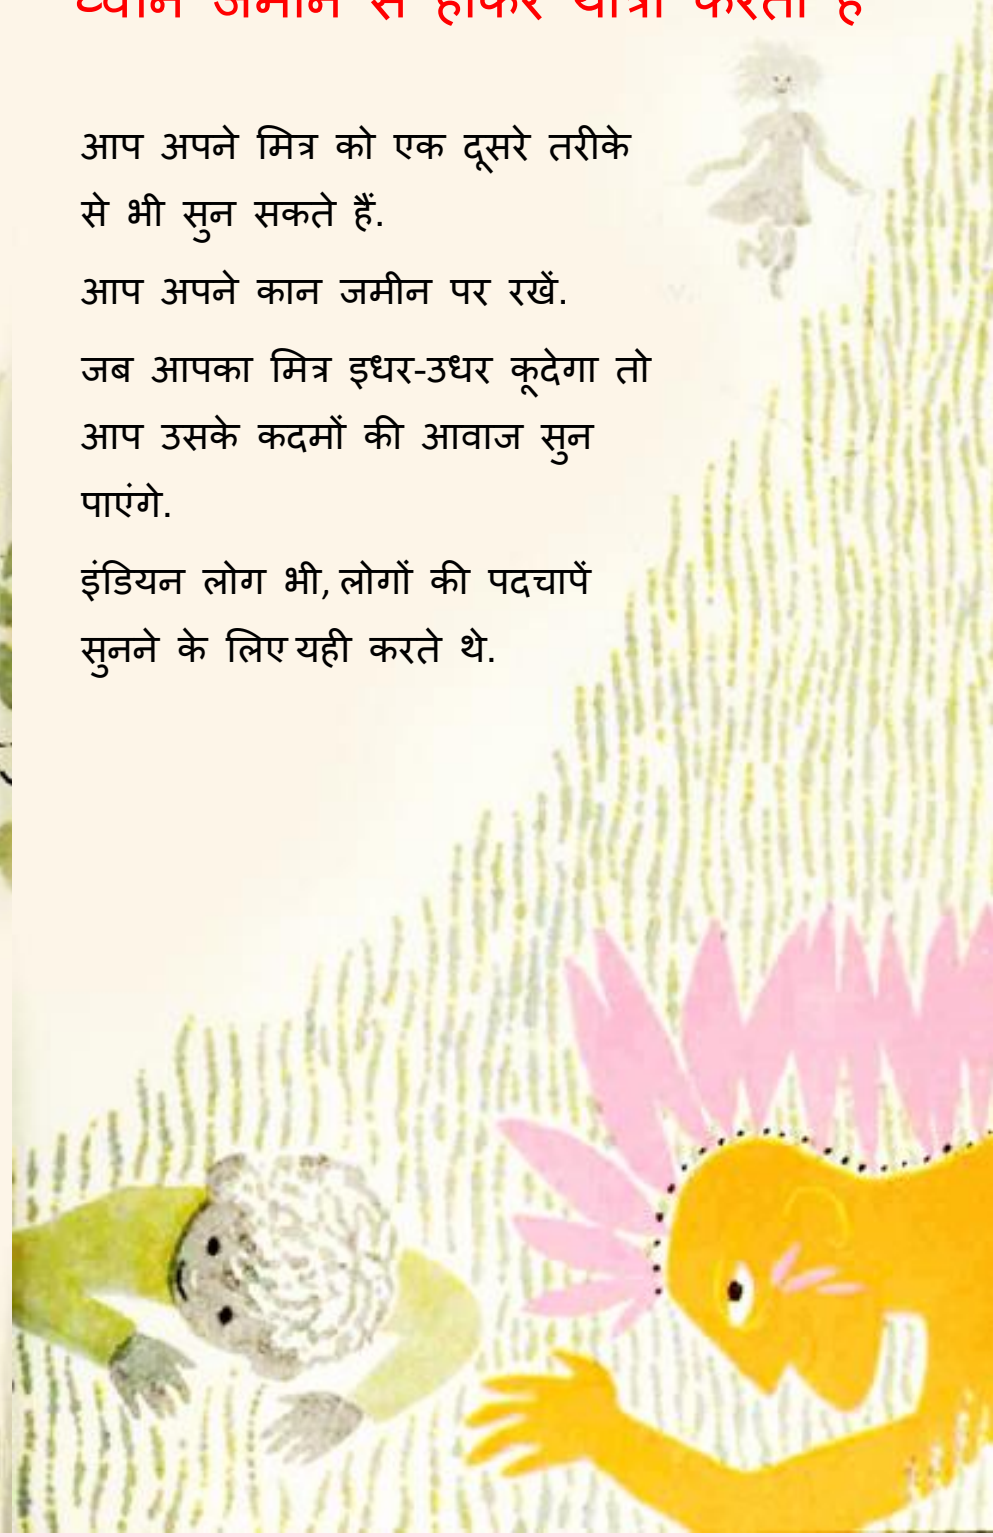 ध्वनि जमीन से होकर यात्रा करती है
आप अपने मित्र को एक दूसरे तरीके
से भी सुन सकते हैं.
आप अपने कान जमीन पर रखें.
जब आपका मित्र इधर-उधर कूदेगा तो
आप उसके कदमों की आवाज सुन
पाएंगे.
इंडियन लोग भी, लोगों की पदचापें
सुनने के लिए यही करते थे.